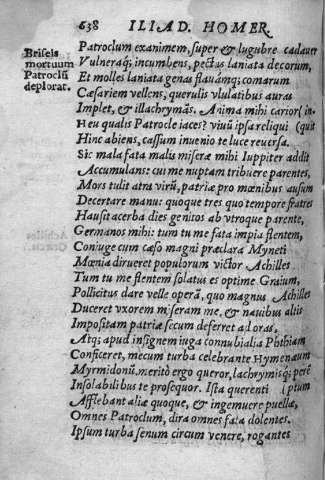 638 ILIAD. HOMER.
Briseis
mortuum
Patroclũ
deplorat.
Patroclum exanimem, super & lugubre cadauer
Vulneraq́;, incumbens, pectus laniata decorum,
Et molles laniata genas flauámq; comarum
Cæsariem vellens, querulis vlulatibus auras
Implet, & illachrymãs. Anima mihi carior (in-
Heu qualis Patrocle iaces? viuũ ipsa reliqui (quit
Hinc abiens, cassum inuenio te luce reuersa.
Sic mala fata malis miseræ mihi Iuppiter addit
Accumulans: cui me nuptam tribuere parentes,
Mors tulit atra virũ, patriæ pro mœnibus ausum
Decertare manu: quoque tres quo tempore fratres
Hausit acerba dies genitos ab vtroque parente,
Germanos mihi: tum tu me fata impia flentem,
Coniuge cum cæso magni præclara Myneti
Mœnia dirueret populorum victor Achilles
Tum tu me flentem solatus es optime Graium,
Pollicitus dare velle operã, quo magnus Achilles
Duceret vxorem miseram me, & nauibus altis
Impositam patrias secum deferret ad oras,
Atq; apud insignem iuga connubialia Phthiam
Conficeret, mecum turba celebrante Hymenæum
Myrmidonũ. meritò ergo queror, lachrymisq́; perẽ
Insolabilibus te prosequor. Ista querenti (ptum
Afflebant aliæ quoque, & ingemuere puellæ,
Omnes Patroclum, dira omnes fata dolentes.
Ipsum turba senum circum venere, rogantes